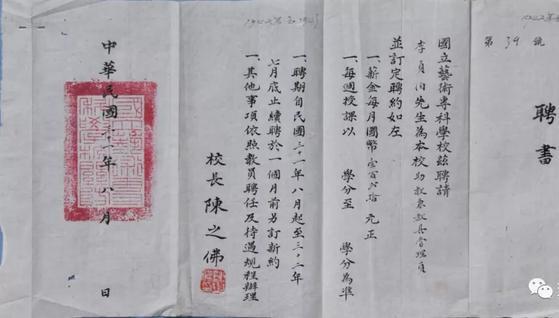 聘書
第39號
國立藝術專科學校茲聘請
李貞白先生為本校助教兼教具管理員
並訂定聘約如左
一、薪金每月國幣壹百六拾元正
一、每週授課以 學分至 學分為準
一、聘期自民國三十一年八月起至三十二年
七月底止續聘於一個月前另訂新約
一、其他事項依照教員聘任及待遇規程辦理
校長陳之佛
中華民國三十一年八月 日